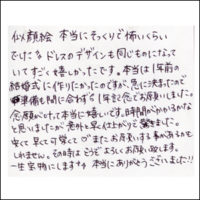 似顔絵 本当にそっくりで怖いくらい
でした。ドレスのデザインも同じものになって
いてすごく嬉しかったです。本当は1年前の
結婚式に作りたかったのですが、急に決まったので
準備も間に合わず1年記念でお願いしました。
念願がけて本当に嬉しいです。日時間がかかるかな
と思いましたが意外と早く仕上がりで驚きました。
安くて早くて可愛くてまたお願いする事があるかも
しれません。その時はどうぞよろしくお願い致します。
一生宝物にします。本当にありがとうございました!!